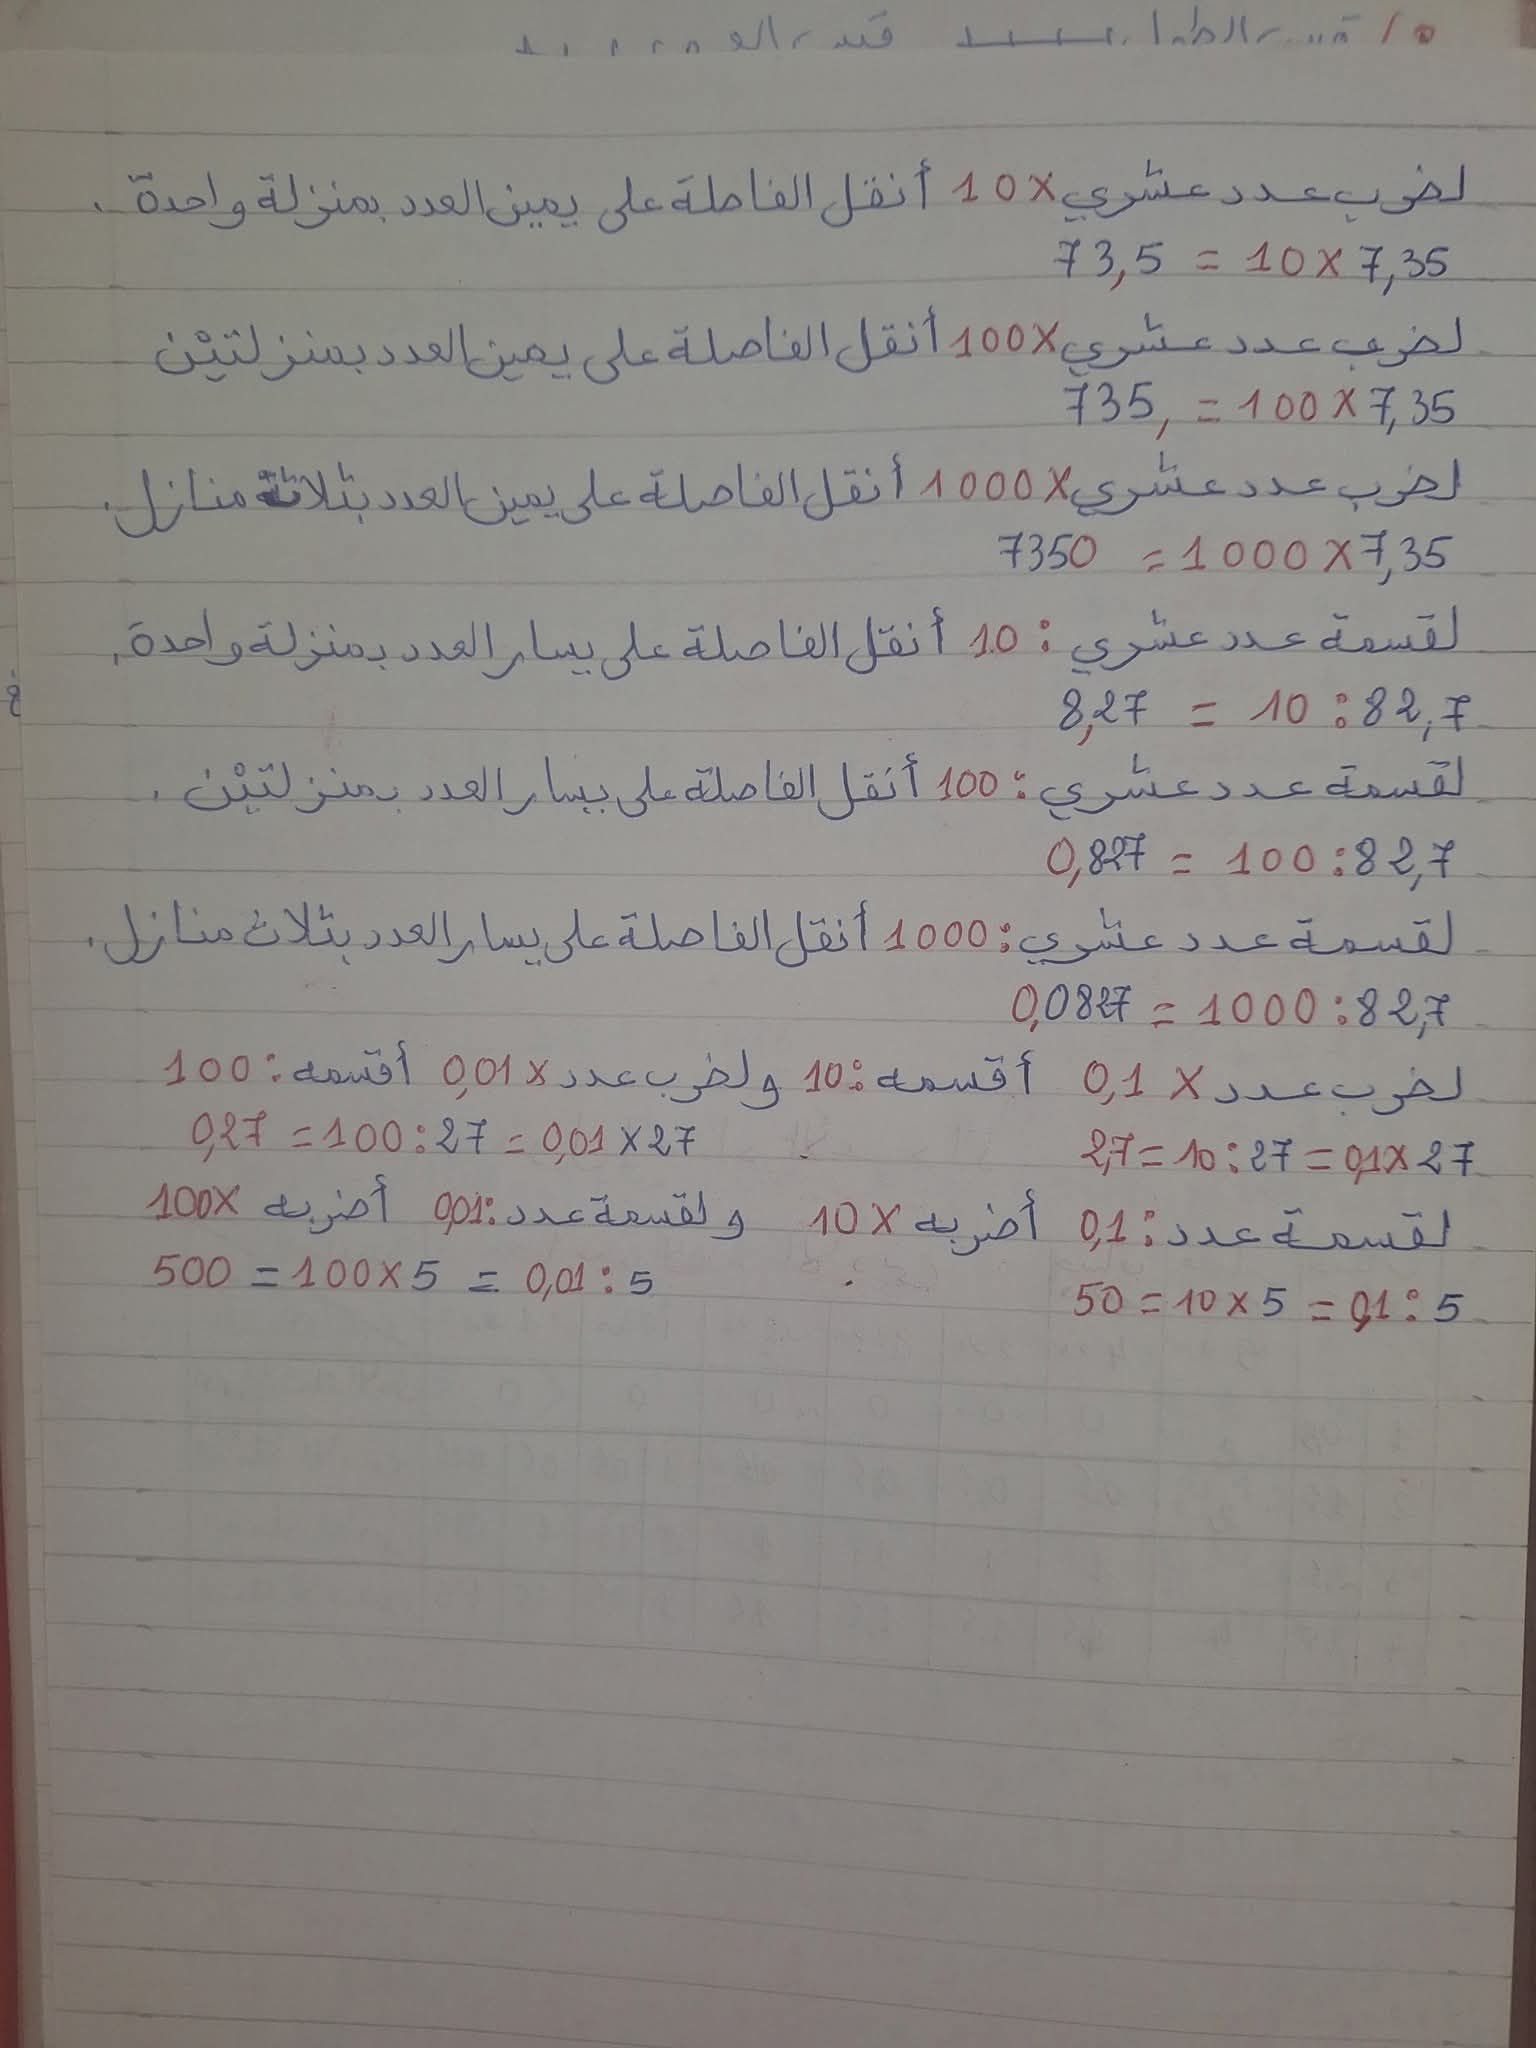 لضرب عدد عشري 10x أنقل الفاصلة على يمين العدد بمنزلة واحدة.
73,5 = 10 x 7,35
لضرب عدد عشري 100x أنقل الفاصلة على يمين العدد بمنزلتيْن
735, = 100 x 7,35
لضرب عدد عشري 1000x أنقل الفاصلة على يمين العدد بثلاثة منازل.
7350 = 1000 x 7,35
لقسمة عدد عشري : 10 أنقل الفاصلة على يسار العدد بمنزلة واحدة.
8,27 = 10 : 82,7
لقسمة عدد عشري : 100 أنقل الفاصلة على يسار العدد بمنزلتيْن.
0,827 = 100 : 82,7
لقسمة عدد عشري : 1000 أنقل الفاصلة على يسار العدد بثلاث منازل.
0,0827 = 1000 : 82,7
لضرب عدد x 0,1 أقسمه : 10 ولضرب عدد x 0,01 أقسمه : 100
2,7 = 10 : 27 = 0,1 x 27 0,27 = 100 : 27 = 0,01 x 27
لقسمة عدد : 0,1 أضربه x 10 ولقسمة عدد : 0,01 أضربه 100x
50 = 10 x 5 = 0,1 : 5 500 = 100 x 5 = 0,01 : 5